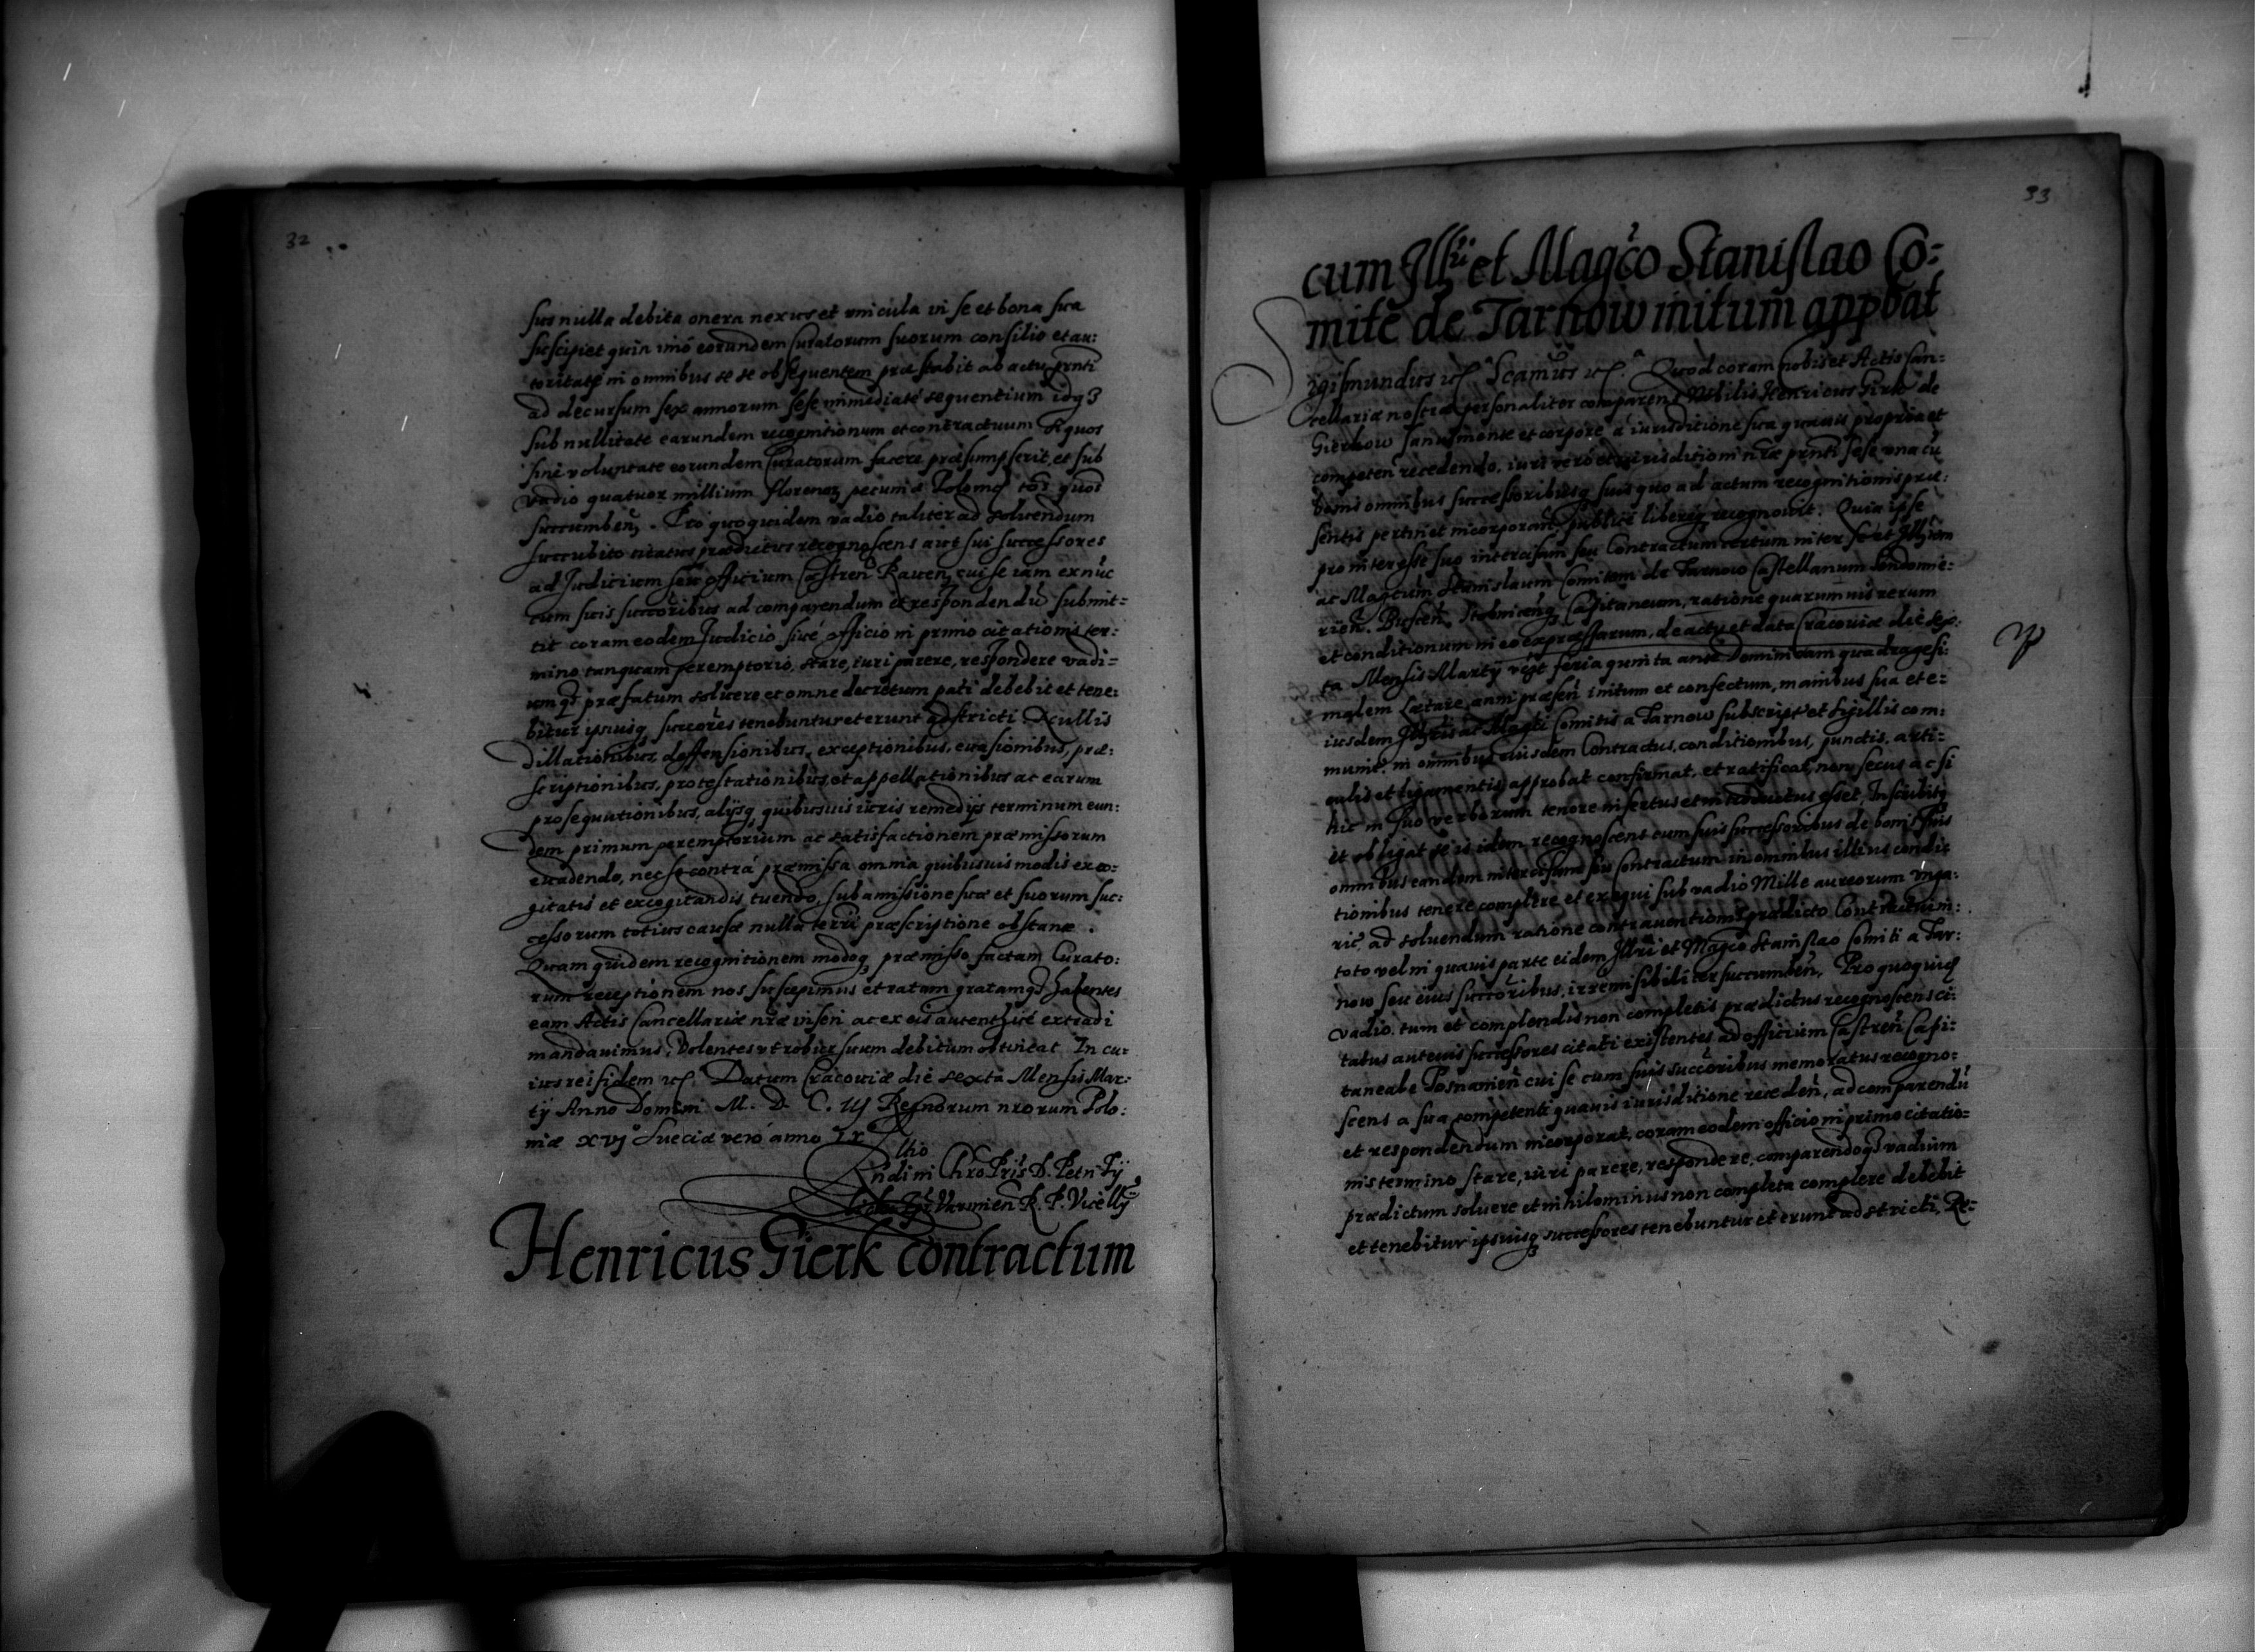 32
suis nulla debita onera nexus et vincula in se et bona sua
suscipiet quin imó eorundem Curatorum suorum consilio et au:
toritate in omnibus se se obsequentem præstabit ab actu prnti
ad decursum sex annorum sese immediaté sequentium idq3
sub nullitate earundem recognitionum et contractuum Et quos
sine voluntate eorundem Curatorum facere præsumpserit, et sub
vadio quatuor millium florenor pecuniæ Polonic
succumben. Pro quo quidem vadio taliter ad solvendum
succubito citatus prædictus recognoscens aut sui successores
ad Judicium seu officium Castren Raven, cui se iam ex nuc
cum suis succoribus ad comparendum et respondendū submit=
tit coram eodem Judicio sivé officio in primo citationis ter:
mino tanquam peremptorio, stare, iuri parere, respondere vadi=
umq3 præfatum solvere et omne decretum pati debebit et tene:
bitur ipsiusq successores tenebuntur et erunt adstricti. Nullis
dillationibus deffensionibus, exceptionibus, evasionibus, præ:
scriptionibus, protestationibus et appellationibus ac earum
prosequutionibus, alijsq quibusvis iuris remedijs terminum eun:
dem primum peremptorium ac satisfactionem præmissorum
evadendo, nec se contrá præmissa omnia quibusvis modis exco:
gitatis et excogitandis tuendo, sub amissione suæ et suorum suc:
cessorum totius causæ nulla terrii præscriptione obstane.
Quam quidem recognitionem modoq præmisso factam Curato:
rum receptionem nos suscepimus et ratam gratamq3 habentes
eam Actis Cancellariæ nræ inseri ac ex eis autenthicé extradi
mandavimus, Volentes vt robur suum debitum obtineat. In cu:
ius rei fidem Datum Cracoviæ die sexta Mensis Mar:
tij Anno Domini M. D C. iij Regnorum nrorum Polo:
niæ xvj Sueciæ veró anno ix
Rndi in Chro Pris D. Petri Ty
Varmien R. P. Vicellij
Henricus Gierk contractum
33
cum Illri et Magco Stanislao Co=
mite de Tarnow initum appbat
Sigismundus Quod coram nobis et Actis Can=
cellariæ nostræ personaliter comparens Nobilis Henricus Girk de
Gierkow sanus mente et corpore á iurisditione sua quavis propria et
competen recedendo, iuri vero et iurisditioni nræ prnti sese una cū
bonis omnibus successoribusq suis quo ad actum recognitionis præ:
sentis pertinet incorporan publicé liberéq recognovit. Quia ipse
pro interesse suo intercisam seu Contractum certum inter se et Illrem
ac Magcum Stanislaum Comitem de Tarnow Castellanum Sandomi=
rien. Buscen. Capitaneum, ratione quarumvis rerum
et conditionum in eo expressarum, de actu et data Cracoviæ die sex:
ta Mensis Martij vigt feria quinta ante Dominicam quadragesi:
malem Lætare, anni præsen initum et confectum, manibus sua et e=
iusdem Illris ac Magci Comitis a Tarnow subscript et Sigillis com:
munit in omnibus eiusdem Contractus, conditionibus, punctis, arti=
culis et ligamentis, approbat confirmat, et ratificat, non secus ac si
hic in suo verborum tenore insertus et introductus esset, Inscribitq
et obligat se is idem recognoscens cum suis successoribus de bonis suis
omnibus eandem intercisam seu contractum in omnibus illius condi=
tionibus tenere complere et exequi sub vadio Mille aureorum Unga:
ric, ad solvendum ratione contraventionis prædicto Contractui in:
toto vel in quavis parte eidem Illri et Magco Stanislao Comiti a Tar:
now seu eius succoribus, irremisibiliter succumben. Pro quoquid
vadio. tum et complendis non completis prædictus recognoscens ci:
tatus aut eius successores citati existentes ad officium Castren Capi=
taneale Posnanien cui se cum suis succoribus memoratus recogno:
scens a sua competenti quavis iurisditione receden, ad comparendū
et respondendum incorporat, coram eodem officio in primo citatio=
nis termino stare, iuri parere, respondere, comparendoq3 vadium
prædictum solvere et nihilominus non completa complere debebit
et tenebitur ipsiusq successores tenebuntur et erunt adstricti, Re=